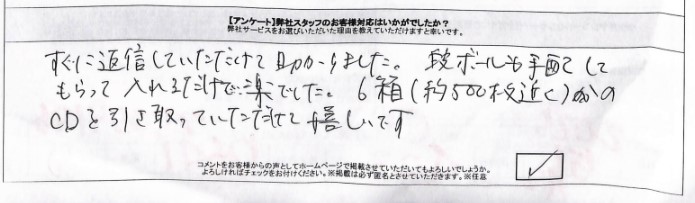 【アンケート】弊社スタッフのお客様対応はいかがでしたか？
弊社サービスをお選びいただいた理由を教えていただけますと幸いです。
すぐに返信していただけて助かりました。段ボールも手配して
もらって入れるだけで楽でした。6箱(約500枚近く)の
CDを引き取っていただけて嬉しいです
コメントをお客様からの声としてホームページで掲載させていただいてもよろしいでしょうか。
よろしければチェックをお付けください。※掲載は必ず匿名とさせていただきます。※任意